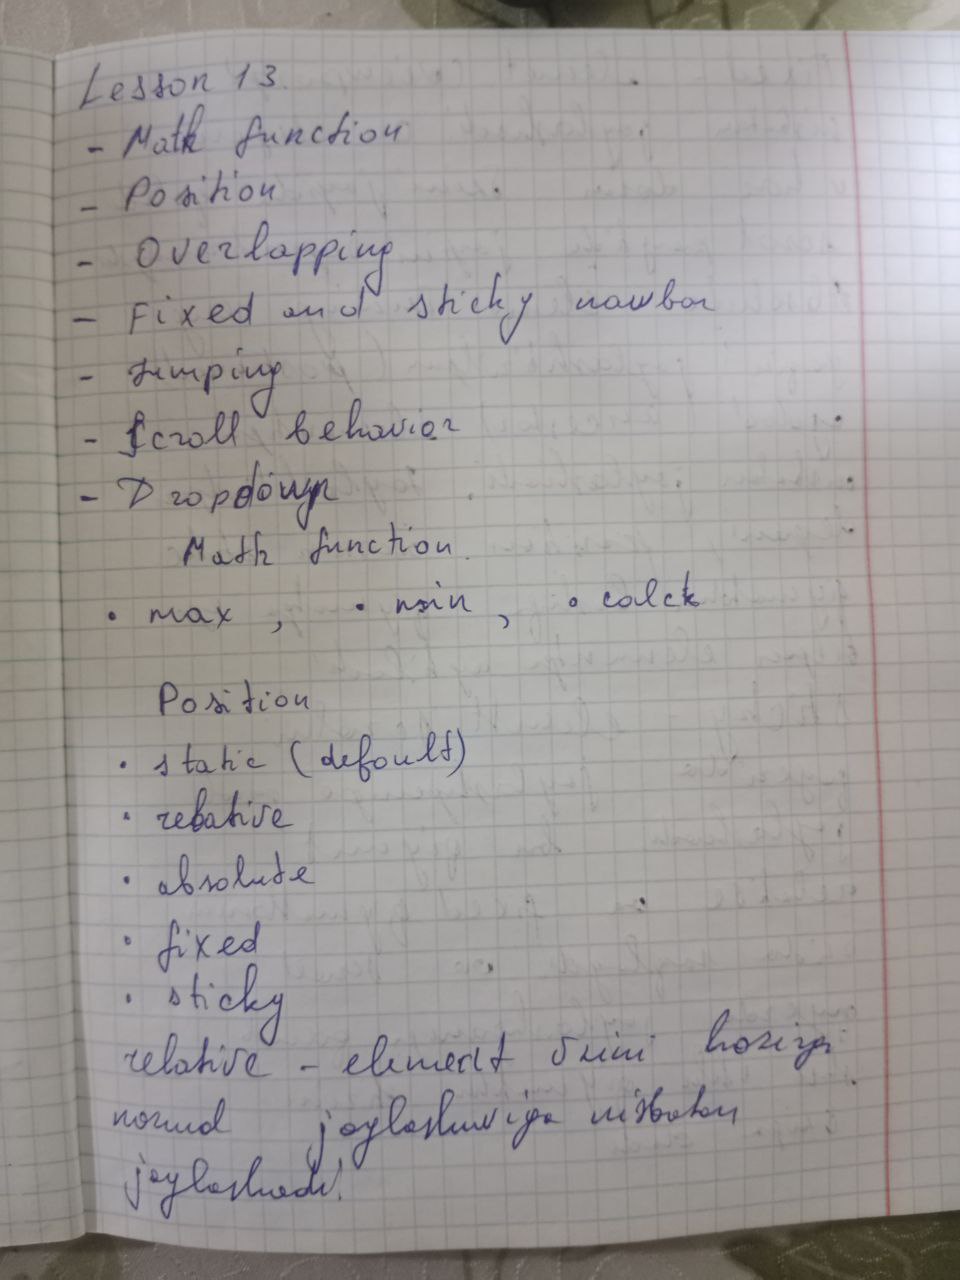 Lesson 13.
- Math function
- Position
- Overlapping
- Fixed and sticky nawbar
- Jumping
- Scroll behavior
- Dropdown
Math function.
• max, • min, • calck
Position
• static (default)
• relative
• absolute
• fixed
• sticky
relative - element õzini hozirgi
normal joylashuviga nisbatan
joylashadi.